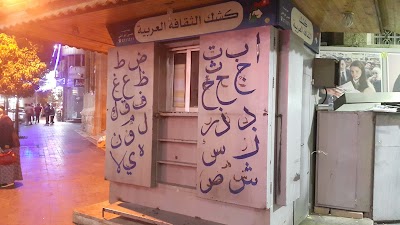 كشك الثقافة العربية
أ ب ت ث
ج ح خ
د ذ ر
ز س
ش ص
ض ط
ظ ع غ
ف ق ك
ل م ن و
ه لا ي